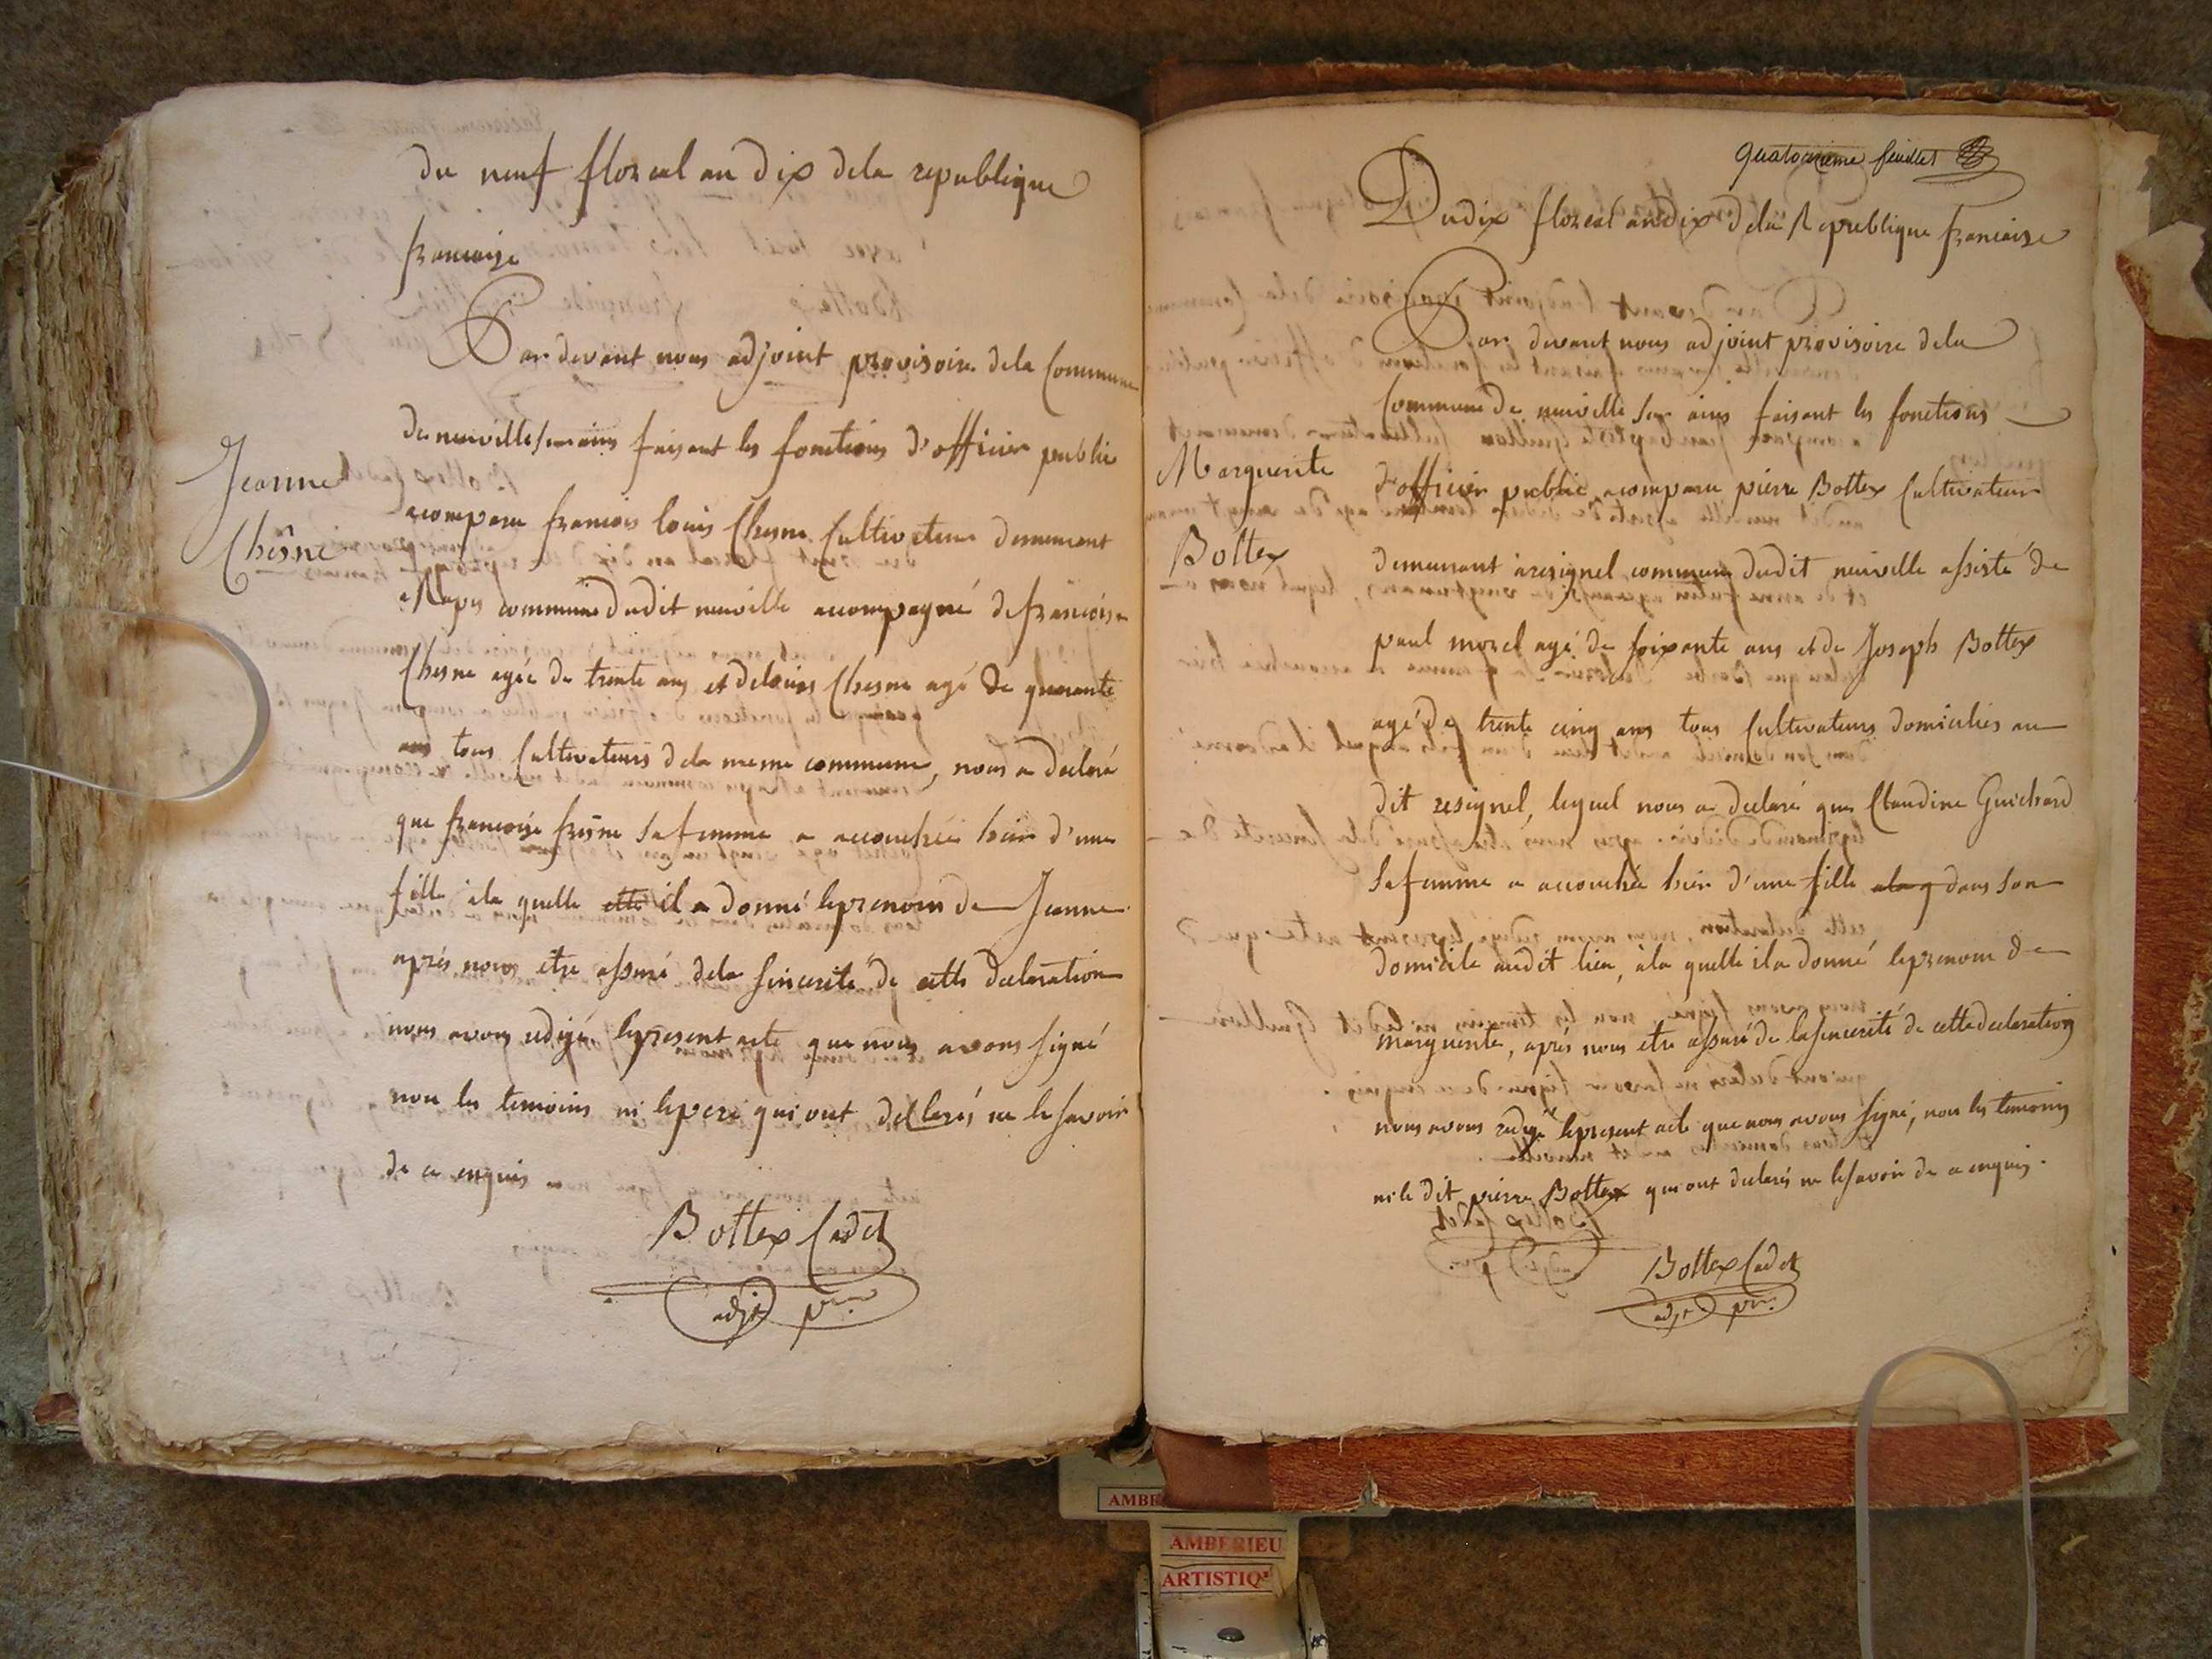 du neuf floreal an dix dela republique
francaise
Par devant nous adjoint provisoire dela Commune
de neuville sur ains faisant les fonctions d'officier public
Jeanne
Chêsne
acomparu francois louis Chesne Cultivateur demeurant
a Rapes commune dudit neuville accompagné de francoise
Chesne agée de trente ans et de louis Chesne agé de quarante
ans tous Cultivateurs dela meme commune, nous a declaré
que francoise frêne sa femme a accouchée hier d'une
fille ala quelle elle il a donné leprenom de Jeanne
aprés nous etre assuré dela sincerité de cette declaration
nous avons redigé lepresent acte que nous avons signé
non les temoins ni lepere qui ont declarés ne le savoir
de ce enquis
Bottex Cadet
adjt pre.
quatorzieme feuillet
Dudix floreal andix dela Republique francaise
Par devant nous adjoint provisoire dela
Commune de neuville sur ains faisant les fonctions
Marguerite
Bottex
d'officier public acomparu pierre Bottex Cultivateur
demeurant a resignel commune dudit neuville assisté de
paul morel agé de soixante ans et de Joseph Bottex
agé de trente cinq ans tous Cultivateurs domiciliés au
dit resignel, lequel nous a declaré que Claudine Guichard
sa femme a accouchée hier d'une fille ala q dans son
domicile audit lieu, àla quelle il a donné leprenom de
marguerite, aprés nous etre assuré de la sincerité de cette declaration
nous avons redigé lepresent acte que nous avons signé, non les temoins
ni le dit pierre Bottex qui ont declarés ne le savoir de ce enquis.
Bottex Cadet
adjt pre.
AMBE
AMBERIEU
ARTISTIQ